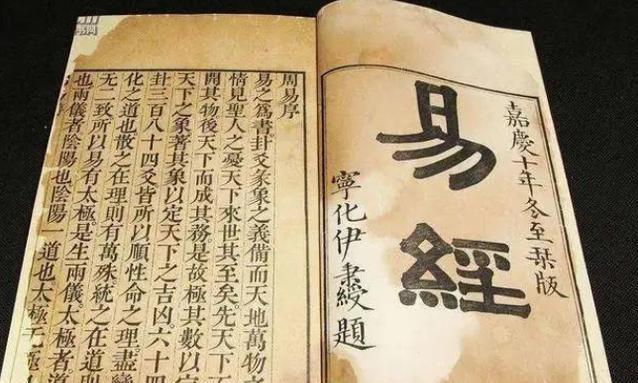 嘉慶十年冬至栞版
易經
寧化伊秉綬題
周易序
易之爲書卦爻彖象之義備而天地萬物之
情見聖人之憂天下來世其至矣先天下
開其物後天下而成其務是故極其數以定
天下之象著其象以定天下之吉凶六十四
卦三百八十四爻皆所以順性命之理盡變
化之道也散之在理則有萬殊統之在道則
无二致所以易有太極是生兩儀太極者道
也兩儀者陰陽也陰陽一道也太極无極